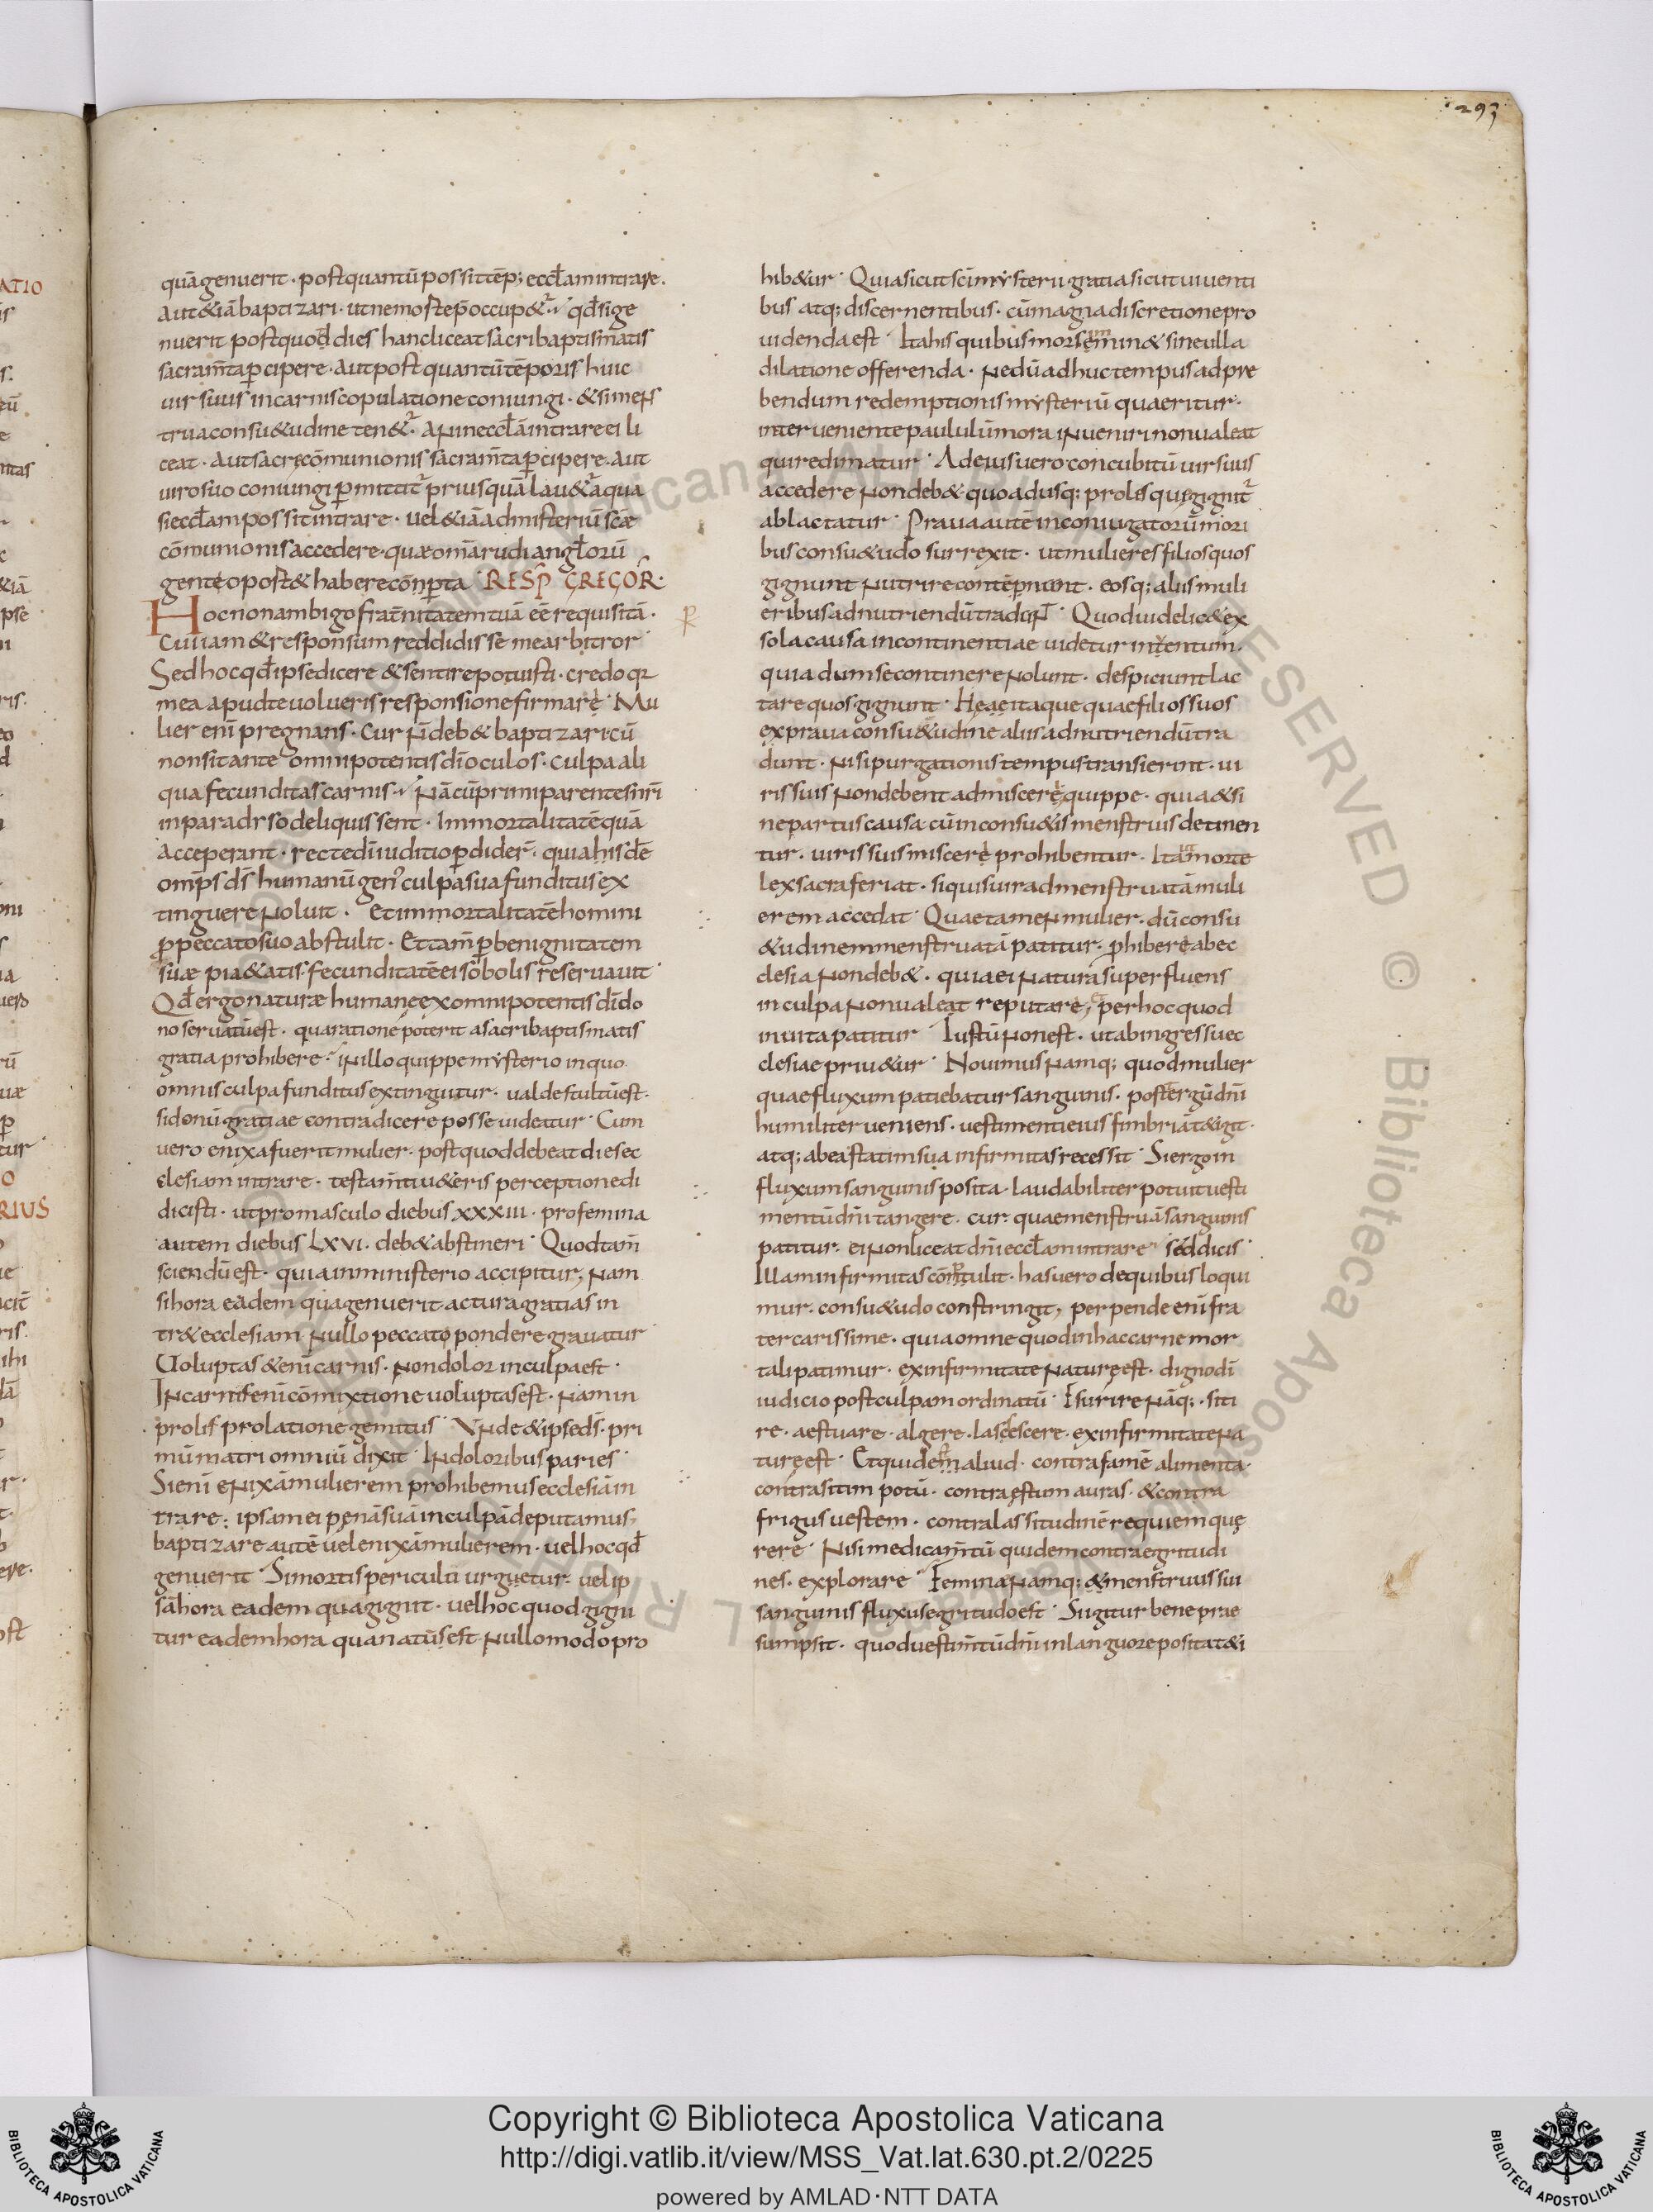 293
quā genuerit · post quantū possit temp; eccłam intrare .
Aut & iā baptizari · ut ne morte p̄occup&ur · qđ si ge
nuerit post quod dies hanc liceat sacri baptismatis
sacram̄ta ꝑcipere · aut post quantū tēporis huic
uir suus in carnis copulatione coniungi · & si men
trua consu&udine ten&ur · an in eccłā intrare ei li
ceat · aut sacrę cōmunionis sacram̄ta ꝑcipere · aut
uiro suo coniungi ꝑmittit̃ priusquā lau&ur aqua
si eccłam possit intrare · uel & iā ad misteriū scæ
cōmunionis accedere · quæ om̄a rudi angłorū
gente oport& habere cōnꝑta RESP̄ GREGOR̄ ·
Hoc non ambigo frat̄nitatem tuā eē requisitā ·
Cui iam & responsum reddidisse me arbitror
Sed hoc qđ ipse dicere & sentire potuisti · credo qr
mea apud te uolueris responsione firmare · Mu
lier enī pregnans · cur n̄ deb& baptizari cū
non sit ante omnipotentis dī oculos · culpa ali
qua fecunditas carnis · Nā cū primi parentes nr̄i
in paradyso deliquissent · Immortalitatē quā
acceperant · recte dī iuditio ꝑdider̄ · quia his dē
omp̄s ds̄ humanū gen' culpa sua funditus ex
tinguere noluit · Et immortalitatē homini
ꝓ peccato suo abstulit · Et tam̄ ꝓ benignitatem
suæ pi&atis · fecunditatē ei sobolis reseruauit
Qđ ergo naturæ humanę ex omnipotentis dī do
no seruatū est · qua ratione poterit a sacri baptismatis
gratia prohibere · in illo quippe mysterio in quo
omnis culpa funditus extinguitur · ualde stultū est ·
si donū gratiae contradicere posse uideatur · Cum
uero enixa fuerit mulier · post quod debeat dies ec
clesiam intrare · testam̄ti u&eris perceptione di
dicisti · ut pro masculo diebus xxxiii · pro femina
autem diebus LXVI · deb& abstineri · Quod tam̄
sciendū est · quia in ministerio accipitur; Nam
si hora eadem qua genuerit actura gratias in
tr& ecclesiam nullo peccato pondere grauatur
Uoluptas & enī carnis · non dolor in culpa est ·
In carnis enī cōmixtione uoluptas est · Nam in
prolis prolatione gemitus · Vnde & ipse ds̄ · pri
mū matri omniū dixit · In doloribus paries ·
Si enī enixā mulierem prohibemus ecclesiā in
trare : ipsam ei penā suā in culpā deputamus ·
baptizare autē uel enixā mulierem · uel hoc qđ
genuerit · Si mortis periculū urguetur · uel ip
sā hora eadem qua gignit · uel hoc quod gigni
tur eadem hora qua natū est nullo modo pro
hib&ur · Quia sicut scī mysterii gratia sicut uiuenti
bus atq; discernentibus · cū magna discretione pro
uidenda est · Ita his quibus mors imin& sine ulla
dilatione offerenda · Ne dū adhuc tempus ad pre
bendum redemptionis mysteriū quaeritur ·
interueniente paululū mora inueniri non ualeat
qui redimatur · Ad eius uero concubitū uir suus
accedere non deb& quoadusq; prolis quę gignit̃
ablactatur · Praua autē in coniugatorū mori
bus consu&udo surrexit · ut mulieres filios quos
gignunt nutrire contēpnunt · eosq; aliis muli
eribus ad nutriendū tradunt · Quod uidelic& ex
sola causa incontinentiae uidetur inuentum ·
quia dum se continere nolunt · despiciunt lac
tare quos gignunt · Heae itaque quae filios suos
ex praua consu&udine aliis ad nutriendū tra
dunt · nisi purgationis tempus transierint · ui
ris suis non debent admisceri quippe · quia & si
ne partus causa cū in consu&is menstruis detinen
tur · uiris suis misceri prohibentur · Ita ut morte
lex sacra feriat · si quis uir ad menstruatā muli
erem accedat · Quae tamen mulier · dū consu
&udinem menstruatā patitur · prohiberi ab ec
clesia non deb& · quia ei natura superfluens
in culpa non ualeat reputari, et per hoc quod
inuita patitur · Iustū non est · ut ab ingressu ec
clesiae priu&ur · Nouimus namq; quod mulier
quae fluxum patiebatur sanguinis · post tergū dn̄i
humiliter ueniens · uestimenti eius fimbriā t&igit ·
atq; ab ea statim sua infirmitas recessit · Si ergo in
fluxum sanguinis posita · laudabiliter potuit uesti
mentū dn̄i tangere · cur quae menstruā sanguinis
patitur · ei non liceat dn̄i eccłam intrare · sed dicis ·
Illam infirmitas conpulit · has uero de quibus loqui
mur · consu&udo constringit, perpende enī fra
ter carissime · quia omne quod in hac carne mor
tali patimur · ex infirmitate naturę est · digno dī
iudicio post culpam ordinatū · Esurire nāq; · siti
re · aestuare · algere · lascescere · ex infirmitate na
turę est · Et quid est aliud · contra famē alimenta ·
contra sitim potū · contra ęstum auras · & contra
frigus uestem · contra lassitudinē requiem quę
rere · Nisi medicam̄tū quidem contra egritudi
nes · explorare · Femina namq; & menstruus sui
sanguinis fluxus egritudo est · Si igitur bene prae
sumpsit · quod uestim̄tū dn̄i in languore posita t&i
Copyright © Biblioteca Apostolica Vaticana
http://digi.vatlib.it/view/MSS_Vat.lat.630.pt.2/0225
powered by AMLAD·NTT DATA